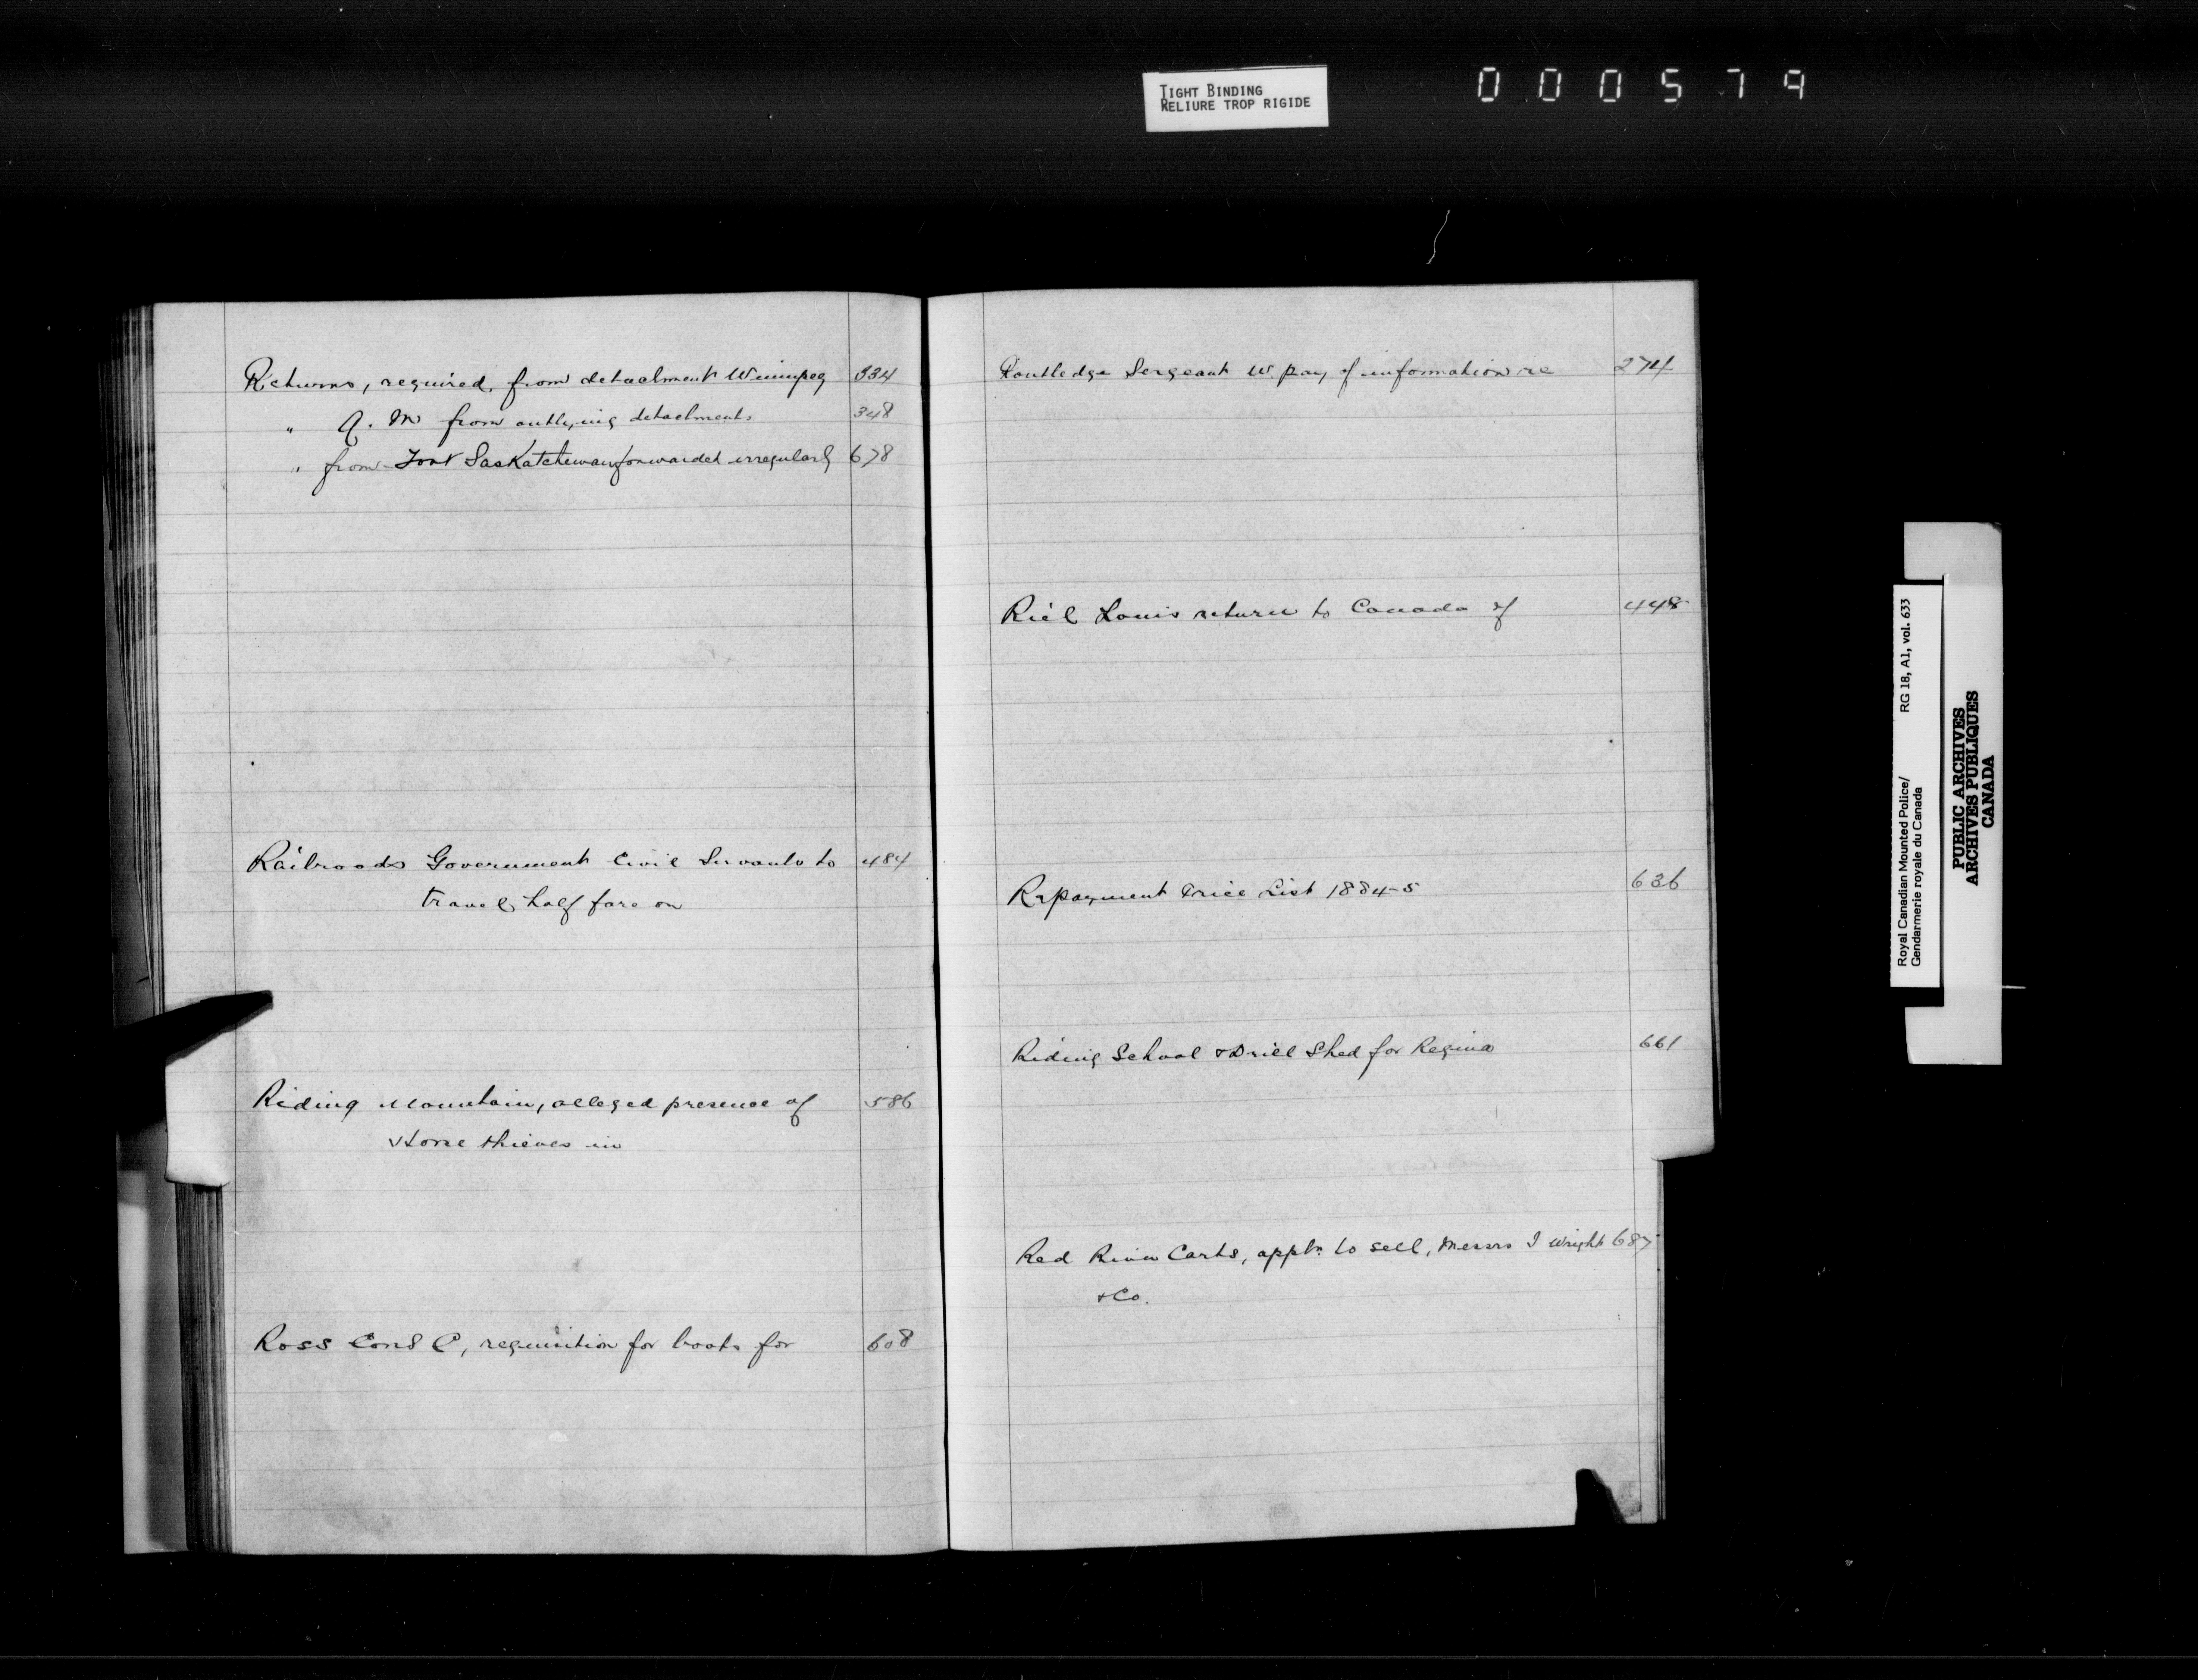 TIGHT BINDING
RELIURE TROP RIGIDE
000579
Returns, required, from detachment Winnipeg 334
" Q. M from outlying detachments 348
" from Fort Saskatchewan forwarded irregularly 678
Railroads Government Civil Servants to 484
travel half fare on
Riding Mountain, alleged presence of 586
Horse thieves in
Ross Const C, requisition for boots for 608
Routledge Sergeant W. pay of information re 274
Riel Louis return to Canada of 448
Repayment Price List 1884-5 636
Riding School & Drill Shed for Regina 661
Red River Carts, appln to sell, Messrs I Wright 687
& Co.
Royal Canadian Mounted Police/ RG 18, A1, vol. 633
Gendarmerie royale du Canada
PUBLIC ARCHIVES
ARCHIVES PUBLIQUES
CANADA